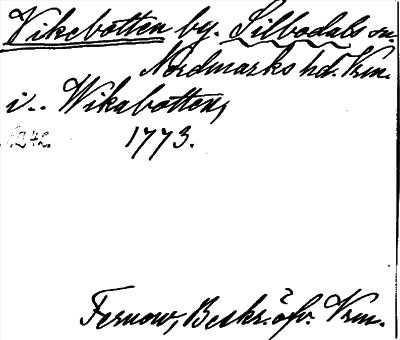 Vikebotten by. Silbodals sn.
Nordmarks hd. Vrm.
i.. Wikabotten,
1773.
Fernow, Beskr. öfv. Vrm.